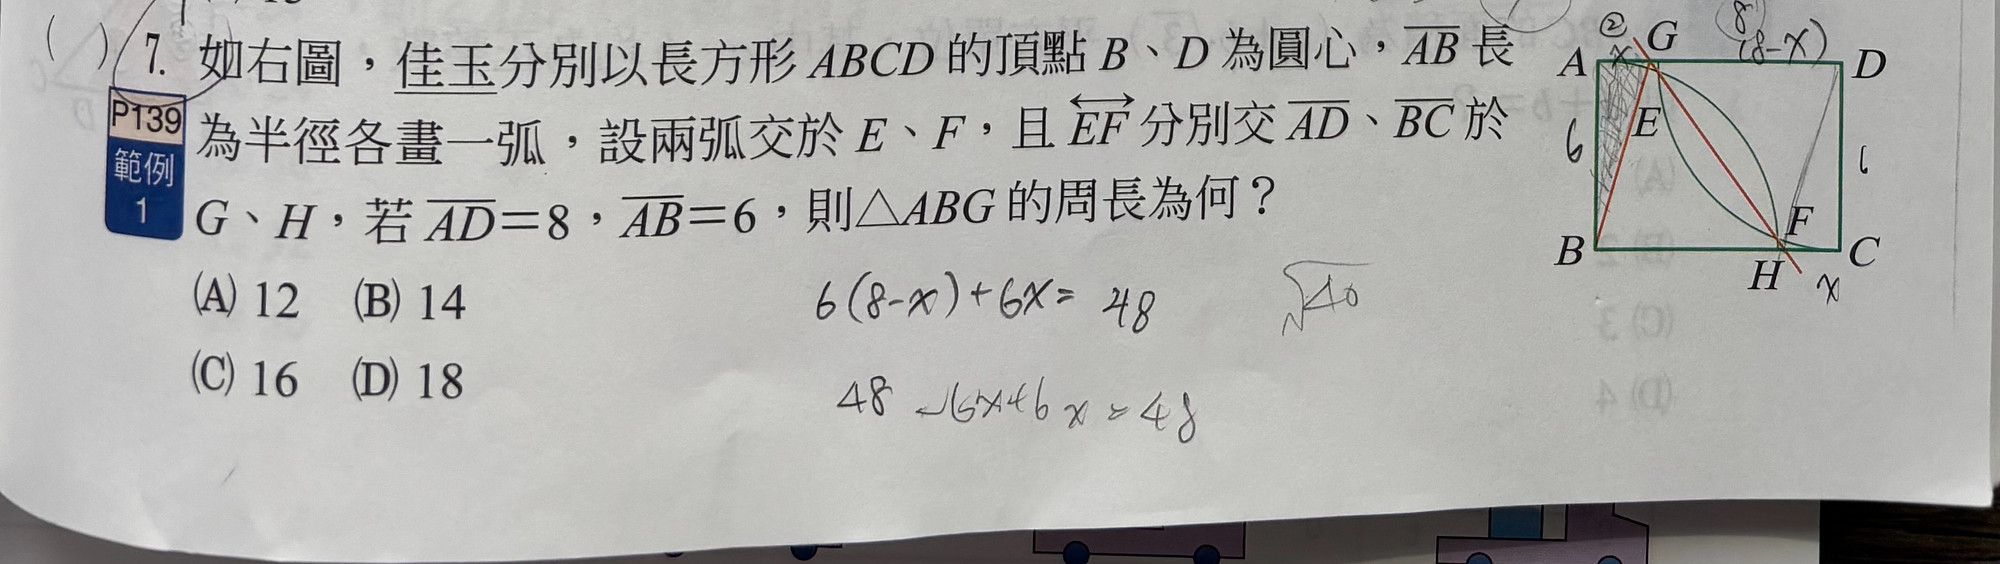 ( ) 7. 如右圖，佳玉分別以長方形 ABCD 的頂點 B、D 為圓心，AB 長
P139
範例
1
為半徑各畫一弧，設兩弧交於 E、F，且 EF 分別交 AD、BC 於
G、H，若 AD=8，AB=6，則△ABG 的周長為何？
(A) 12 (B) 14
(C) 16 (D) 18
6(8-x)+6x= 48
√40
48 -6x+6x = 48
② 8
A x G (8-x) D
6 E
F
B H x C